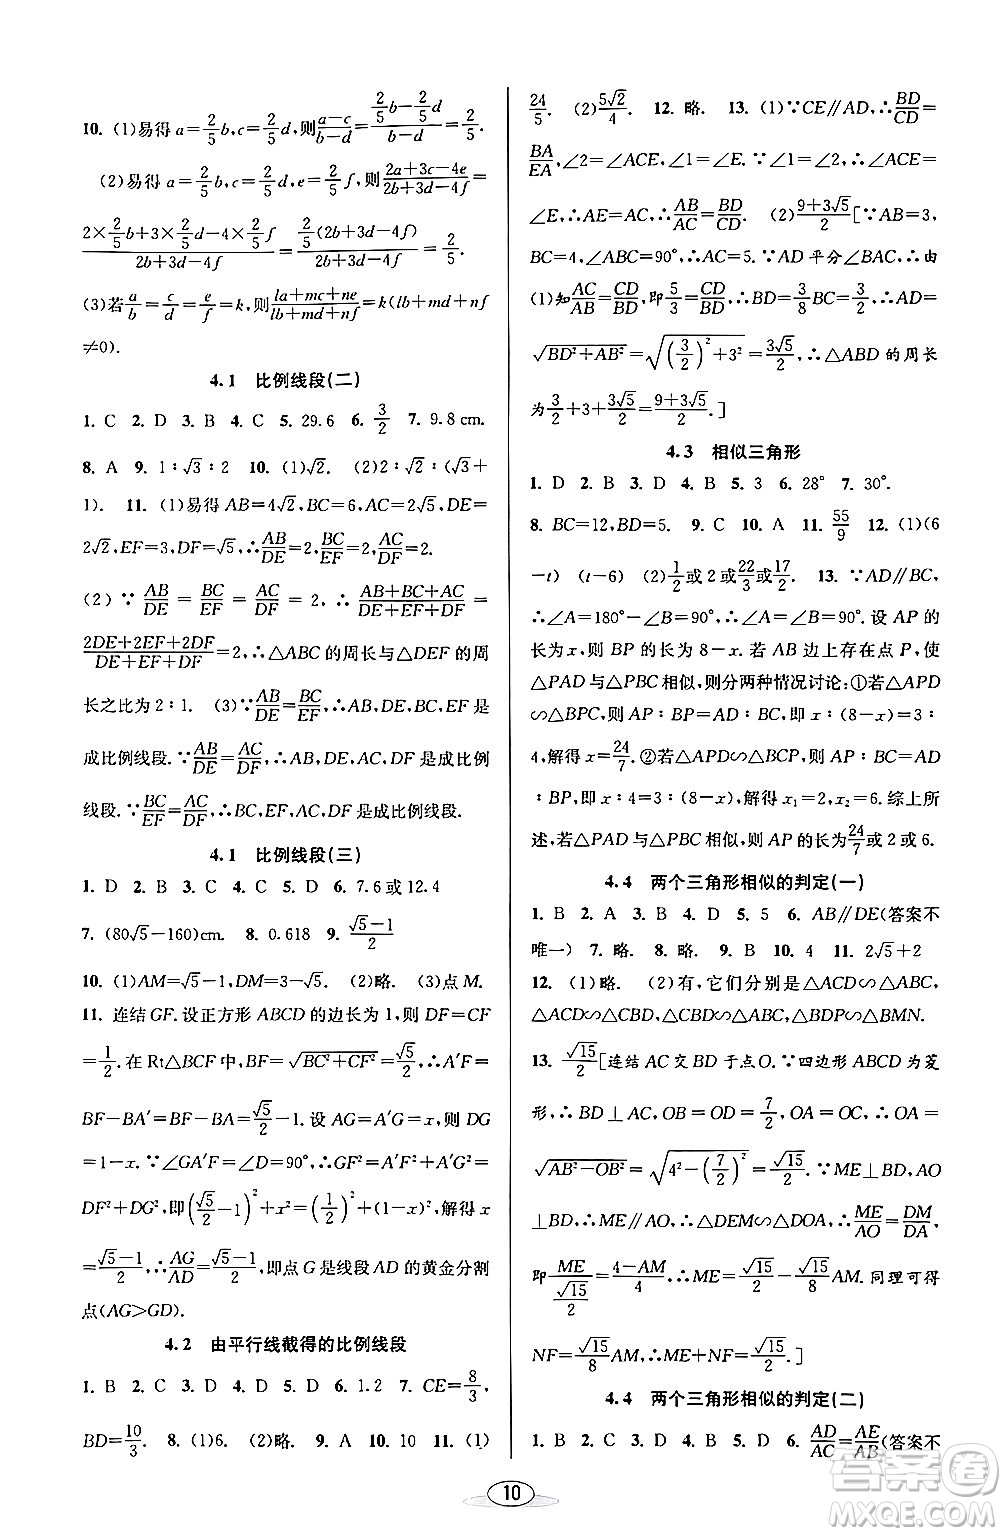 10. (1)易得a=2/5b,c=2/5d,则(a-c)/(b-d)=(2/5b-2/5d)/(b-d)=2/5.
(2)易得a=2/5b,c=2/5d,e=2/5f,则(2a+3c-4e)/(2b+3d-4f)=
(2×2/5b+3×2/5d-4×2/5f)/(2b+3d-4f)=(2/5(2b+3d-4f))/(2b+3d-4f)=2/5.
(3)若a/b=c/d=e/f=k,则(la+mc+ne)/(lb+md+nf)=k(lb+md+nf
≠0).
4.1 比例线段(二)
1. C 2. D 3. B 4. C 5. 29.6 6. 3/2 7. 9.8 cm.
8. A 9. 1∶√3∶2 10. (1)√2. (2)√2∶(√3+
1). 11. (1)易得AB=4√2,BC=6,AC=2√5,DE=
2√2,EF=3,DF=√5,∴AB/DE=2,BC/EF=2,AC/DF=2.
(2)∵AB/DE=BC/EF=AC/DF=2,∴(AB+BC+AC)/(DE+EF+DF)=
(2DE+2EF+2DF)/(DE+EF+DF)=2,∴△ABC的周长与△DEF的周
长之比为2∶1. (3)∵AB/DE=BC/EF,∴AB,DE,BC,EF是
成比例线段.∵AB/DE=AC/DF,∴AB,DE,AC,DF是成比例
线段.∵BC/EF=AC/DF,∴BC,EF,AC,DF是成比例线段.
4.1 比例线段(三)
1. D 2. B 3. D 4. C 5. B 6. 7.6或12.4
7. (80√5-160)cm. 8. 0.618 9. (√5-1)/2
10. (1)AM=√5-1,DM=3-√5. (2)略. (3)点M.
11. 连结GF.设正方形ABCD的边长为1,则DF=CF
=1/2.在Rt△BCF中,BF=√(BC²+CF²)=√5/2,∴A′F=
BF-BA′=BF-BA=√5/2-1.设AG=A′G=x,则DG
=1-x.∵∠GA′F=∠D=90°,∴GF²=A′F²+A′G²=
DF²+DG²,即(√5/2-1)²+x²=(1/2)²+(1-x)²,解得x
=(√5-1)/2,∴AG/AD=(√5-1)/2,即点G是线段AD的黄金分割
点(AG>GD).
4.2 由平行线截得的比例线段
1. B 2. C 3. B 4. D 5. C 6. 1.2 7. CE=8/3,
BD=10/3. 8. (1)6. (2)略. 9. A 10. 10 11. (1)
24/5. (2)5√2/4. 12. 略. 13. (1)∵CE∥AD,∴BD/CD=
BA/EA,∠2=∠ACE,∠1=∠E.∵∠1=∠2,∴∠ACE=
∠E,∴AE=AC,∴AB/AC=BD/CD. (2)(9+3√5)/2[∵AB=3,
BC=4,∠ABC=90°,∴AC=5.∵AD平分∠BAC,∴由
(1)知AC/AB=CD/BD,即5/3=CD/BD,∴BD=3/8BC=3/2,∴AD=
√(BD²+AB²)=√((3/2)²+3²)=3√5/2,∴△ABD的周长
为3/2+3+3√5/2=(9+3√5)/2.]
4.3 相似三角形
1. D 2. B 3. D 4. B 5. 3 6. 28° 7. 30°.
8. BC=12,BD=5. 9. C 10. A 11. 55/9 12. (1)(6
-t) (t-6) (2)1/2或2或22/3或17/2. 13. ∵AD∥BC,
∴∠A=180°-∠B=90°,∴∠A=∠B=90°.设AP的
长为x,则BP的长为8-x.若AB边上存在点P,使
△PAD与△PBC相似,则分两种情况讨论:①若△APD
∽△BPC,则AP∶BP=AD∶BC,即x∶(8-x)=3∶
4,解得x=24/7.②若△APD∽△BCP,则AP∶BC=AD
∶BP,即x∶4=3∶(8-x),解得x₁=2,x₂=6.综上所
述,若△PAD与△PBC相似,则AP的长为24/7或2或6.
4.4 两个三角形相似的判定(一)
1. B 2. A 3. C 4. D 5. 5 6. AB∥DE(答案不
唯一) 7. 略. 8. 略. 9. B 10. B 11. 2√5+2
12. (1)略. (2)有,它们分别是△ACD∽△ABC,
△ACD∽△CBD,△ABC∽△CBD,△BDP∽△BMN.
13. √15/2[连结AC交BD于点O.∵四边形ABCD为菱
形,∴BD⊥AC,OB=OD=7/2,OA=OC,∴OA=
√(AB²-OB²)=√(4²-(7/2)²)=√15/2.∵ME⊥BD,AO
⊥BD,∴ME∥AO,∴△DEM∽△DOA,∴ME/AO=DM/DA,
即ME/(√15/2)=(4-AM)/4,∴ME=√15/2-√15/8AM.同理可得
NF=√15/8AM,∴ME+NF=√15/2.]
4.4 两个三角形相似的判定(二)
1. B 2. C 3. A 4. B 5. D 6. AD/AC=AE/AB(答案不
10
答案圈
MXQE.COM